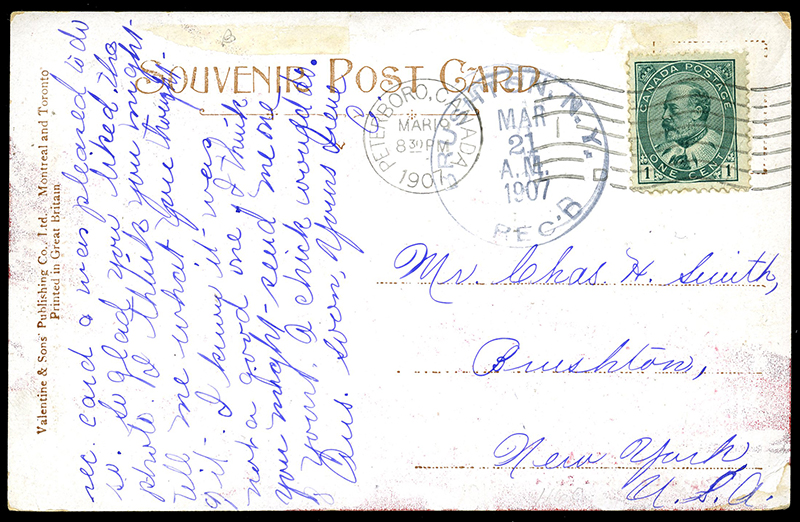 SOUVENIR POST CARD
PETERBORO, CANADA
MAR 19
8 30 PM
1907
BRUSHTON, N.Y.
MAR
21
A.M.
1907
REC'D
CANADA POSTAGE
1 ONE CENT 1
rec. card & was pleased to do
so. So glad you liked the
photo. I'd think you might
tell me what you thought
of it. I know it was
not a good one. I think
you might send me one
of yours. A chick would do.
Ans. soon, Yours Sience
Mr. Chas. H. Smith,
Brushton,
New York
U.S.A.
Valentine & Sons' Publishing Co., Ltd., Montreal and Toronto
Printed in Great Britain.